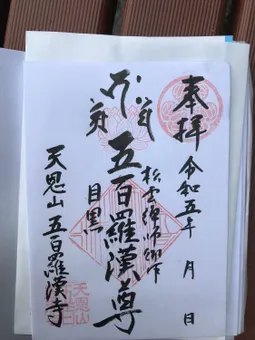 奉拝
令和五年 月 日
松雲禅師御作
五百羅漢尊
目黒
天恩山 五百羅漢寺